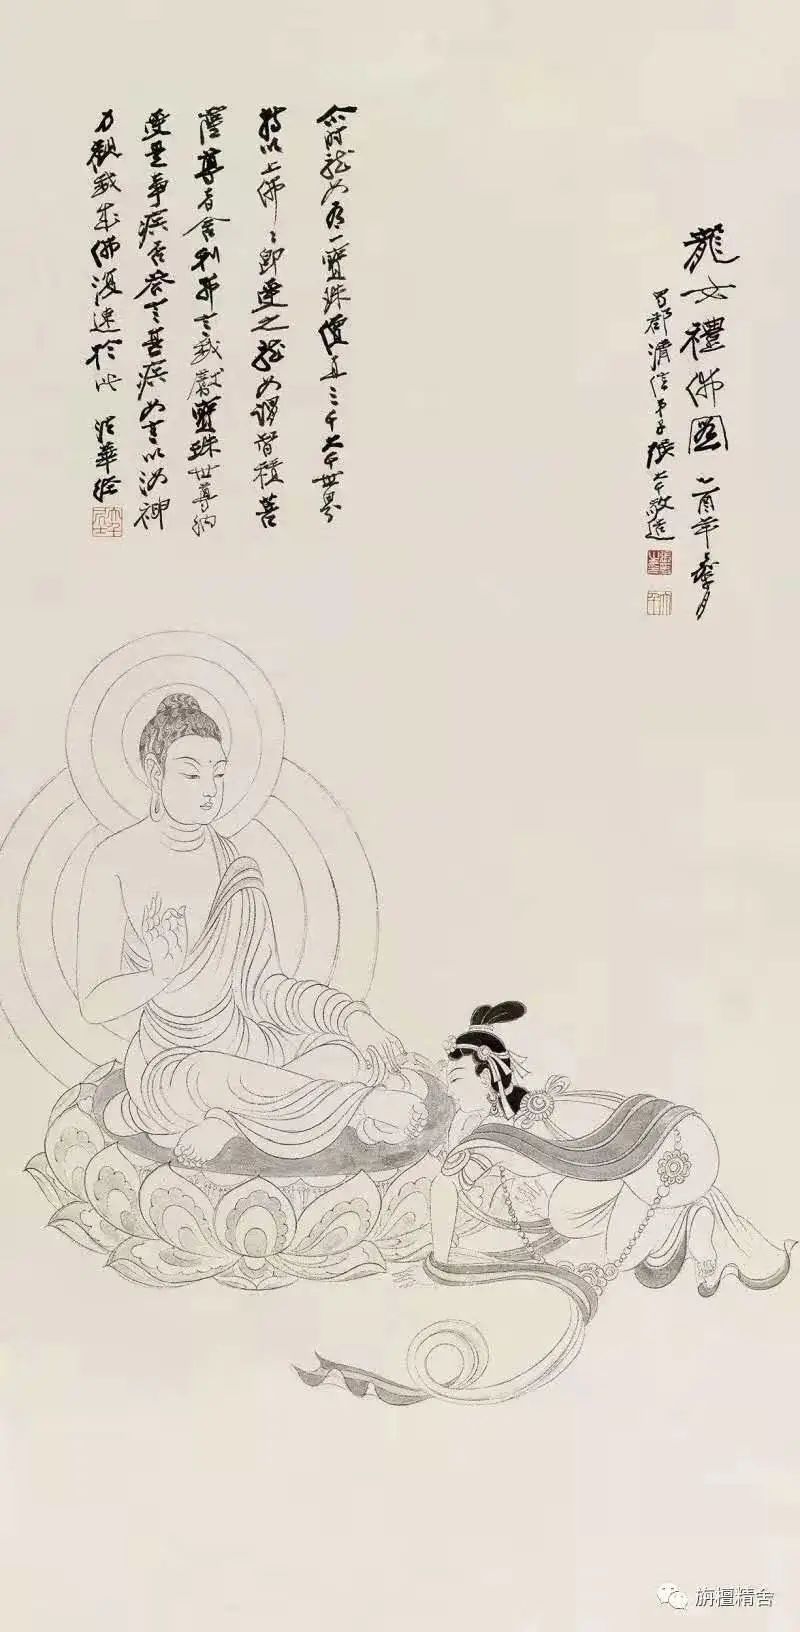 龍女禮佛圖 乙酉年 月
蜀郡清信弟子張大千敬造
大千
尒時龍女有一寶珠價直三千大千世界
持以上佛々即受之龍女謂智積菩
薩尊者舍利弗言我獻寶珠世尊納
受是事疾否答言甚疾女言以汝神
力觀我成佛復速於此 法華經
大千居士
旃檀精舍